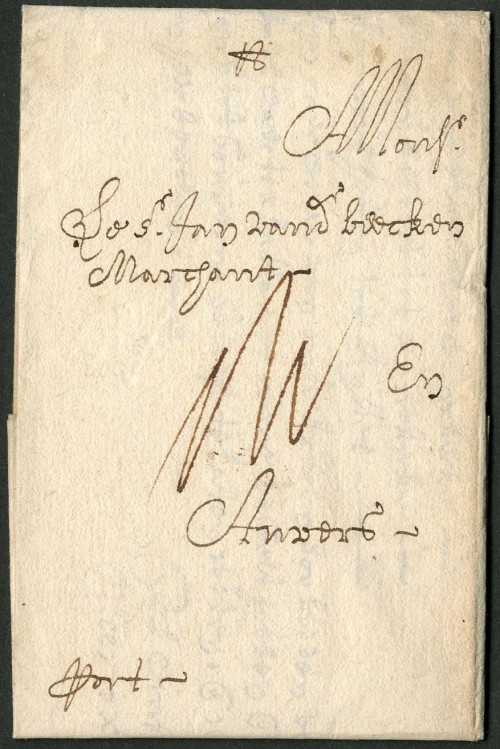 Monsr.
Le sr. Jan vandr beecken
Marchant
En
Anvers
Port